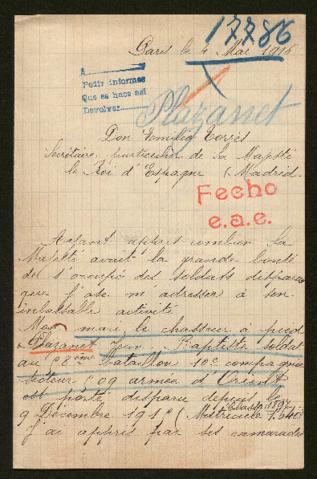 17786
Paris le 4 Mai 1916
A
Pedir informes
Que se hace así
Devolver
Plazanet
Don Emilio Torrès
Secrétaire particulier de Sa Majesté
le Roi d'Espagne Madrid
Fecho
e.a.e.
Ayant appris combien Sa
Majesté avait la grande bonté
de s'occupé des soldats disparus
que j'ose m'adresser à son
inlassable activité
Mon mari le chasseur à pied
Plazanet Jean Baptiste soldat
au Bataillon 10e compagnie
Secteur 509 armée d'Orient
est porté disparu depuis le
9 Décembre Classe Matricule
j'ai appris par ses camarades